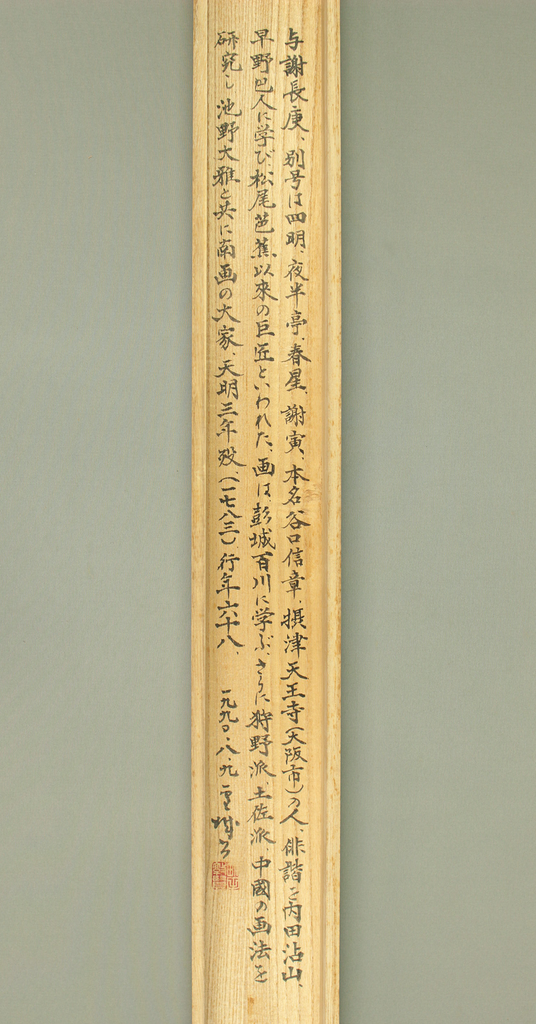 与謝長庚、別号は四明、夜半亭、春星、謝寅、本名谷口信章、摂津天王寺(大阪市)の人、俳諧を内田沾山、
早野巴人に学び、松尾芭蕉以来の巨匠といわれた、画は、彭城百川に学ぶ、さらに狩野派、土佐派、中國の画法を
研究し池野大雅と共に南画の大家、天明三年歿、(一七八三)行年六十八、
一九九〇・八・九